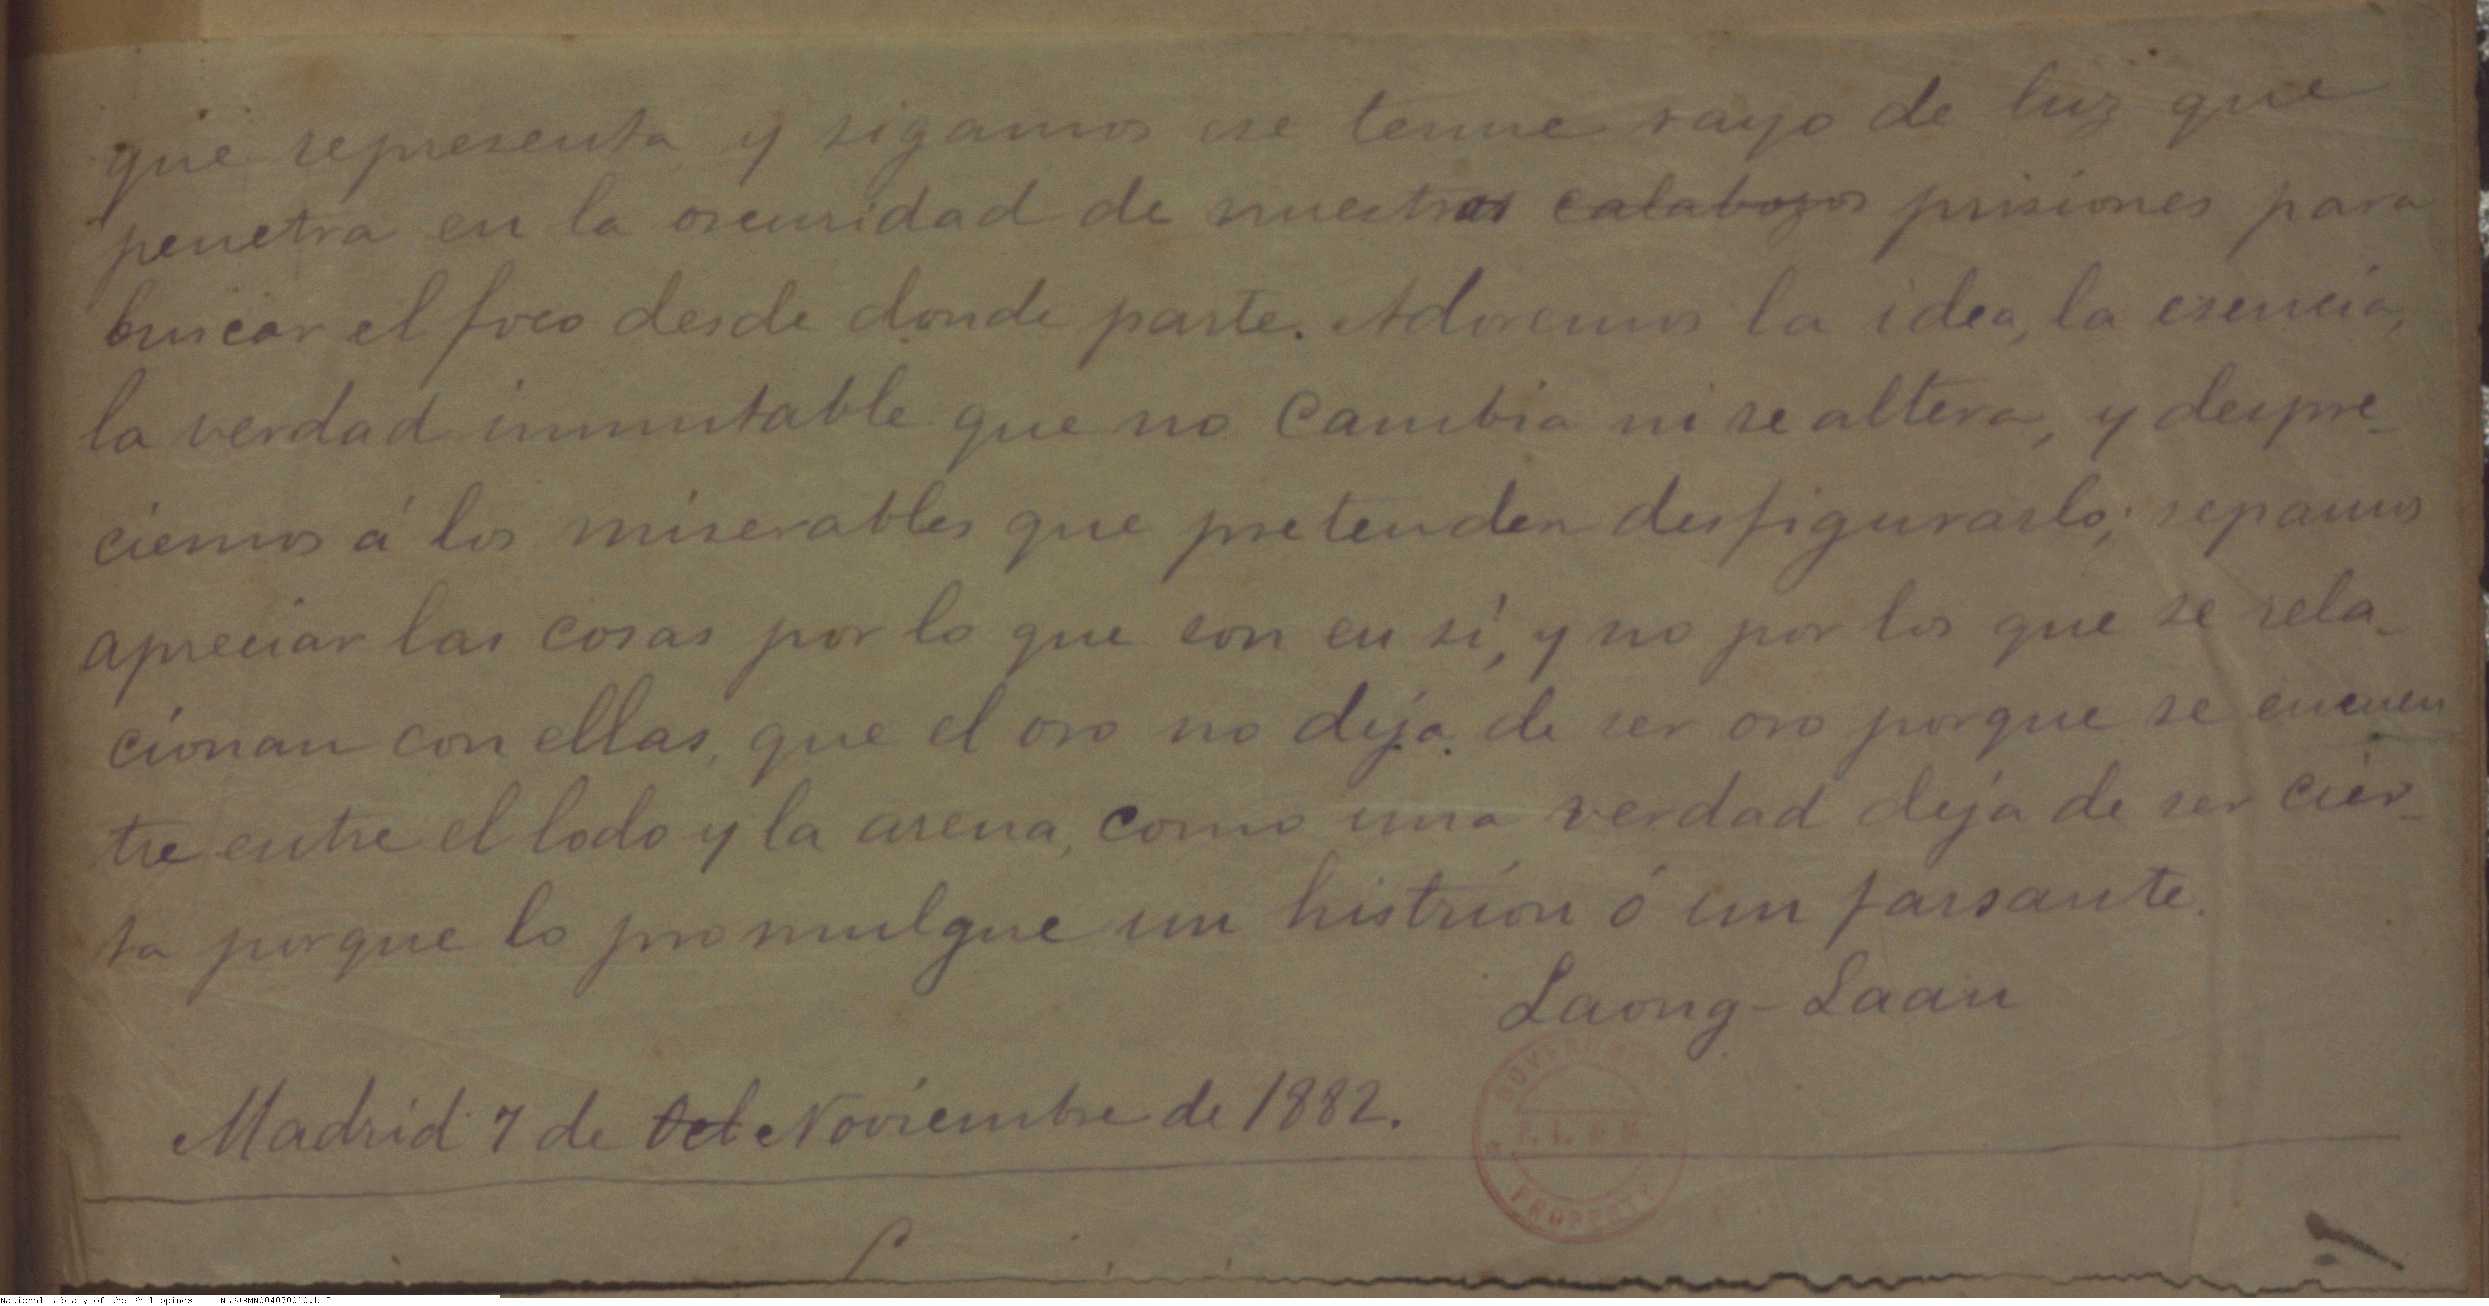 que representa y sigamos ese tenue rayo de luz que
penetra en la oscuridad de nuestras calabozos prisiones para
buscar el foco desde donde parte. Adoremos la idea, la esencia,
la verdad inmutable que no cambia ni se altera, y despre-
ciemos á los miserables que pretenden desfigurarlo; sepamos
apreciar las cosas por lo que son en sí, y no por los que se rela-
cionan con ellas, que el oro no deja de ser oro porque se encuen
tre entre el lodo y la arena, como una verdad deja de ser cier-
ta porque lo promulgue un histrión ó un farsante.
Laong-Laan
Madrid 7 de Oct Noviembre de 1882.
GOVERNMENT
PROPERTY
National Library of the Philippines